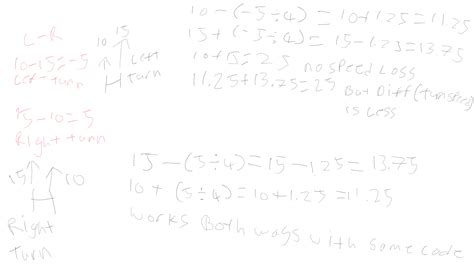 L-R
10-15=-5
Left turn
10 15
Left
turn
15-10=5
Right turn
15 10
Right
turn
10-(-5÷4)=10+1.25=11.25
15+(-5÷4)=15-1.25=13.75
10+15=25 no speed Loss
11.25+13.25=25 But Diff(turnspeed)
is Less
15-(5÷4)=15-1.25=13.75
10+(5÷4)=10+1.25=11.25
works Both ways with same code